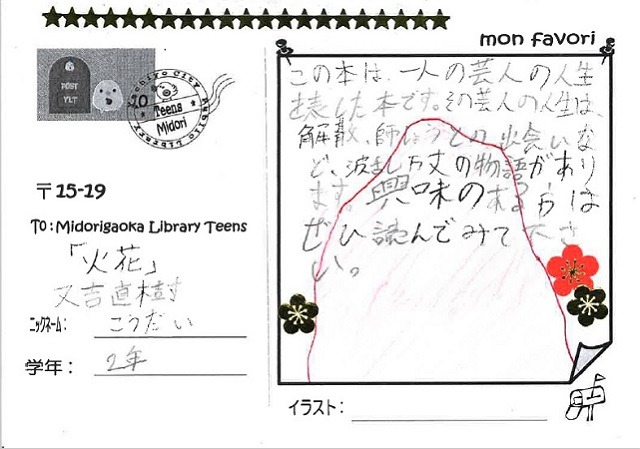 mon favori
この本は、一人の芸人の人生
を表した本です。その芸人の人生は、
解散、師しょうとの出会いな
ど、波らん万丈の物語があり
ます。興味のある方は
ぜひ読んでみて下さ
い。
POST
YLT
Teens
Midori
〒15-19
To:Midorigaoka Library Teens
「火花」
又吉直樹
ニックネーム: こうだい
学年: 2年
イラスト: